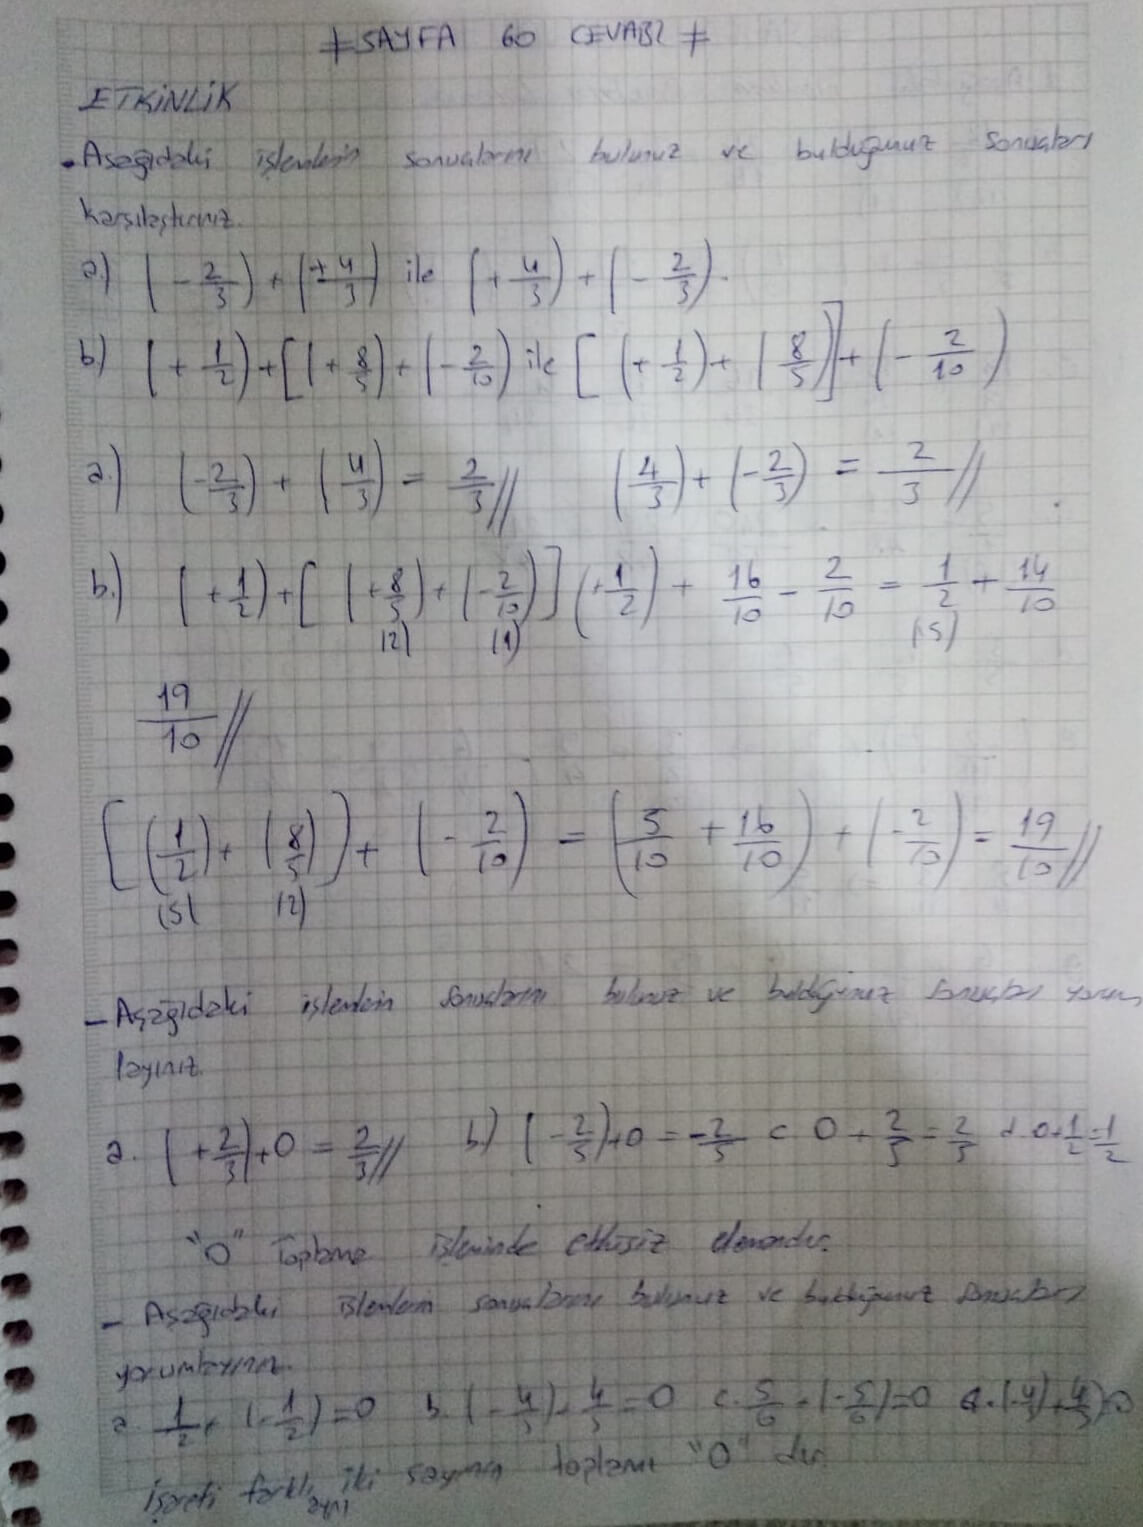 SAYFA 60 CEVABI
ETKİNLİK
• Aşağıdaki işlemlerin sonuçlarını bulunuz ve bulduğunuz sonuçları
karşılaştırınız.
a.) (- 2/3) + (+4/3) ile (+ 4/3) + (- 2/3).
b) (+ 1/2) + [(+ 8/5) + (- 2/10) ile [(+ 1/2) + (8/5)] + (- 2/10)
a.) (-2/3) + (4/3) = 2/3// (4/3) + (-2/3) = 2/3//
b.) (+1/2) + [(+8/5) + (-2/10)] (+1/2) + 16/10 - 2/10 = 1/2 + 14/10
(2) (1) (5)
19/10//
[(1/2) + (8/5)] + (- 2/10) = (5/10 + 16/10) + (-2/10) = 19/10//
(5) (2)
- Aşağıdaki işlemlerin sonuçlarını bulunuz ve bulduğunuz sonuçları yorum
layınız.
a. (+2/3)+0 = 2/3// b.) (-2/5)+0 = -2/5 c 0 + 2/5 = 2/5 d. 0+1/2=1/2
"0" Toplama işleminde etkisiz elemandır.
- Aşağıdaki işlemlerin sonuçlarını bulunuz ve bulduğunuz sonuçları
yorumlayınız.
a. 1/2 + (-1/2) = 0 b. (-4/5) + 4/5 = 0 c. 5/6 + (-5/6) = 0
İşareti farklı, aynı iki sayının toplamı "0" dır